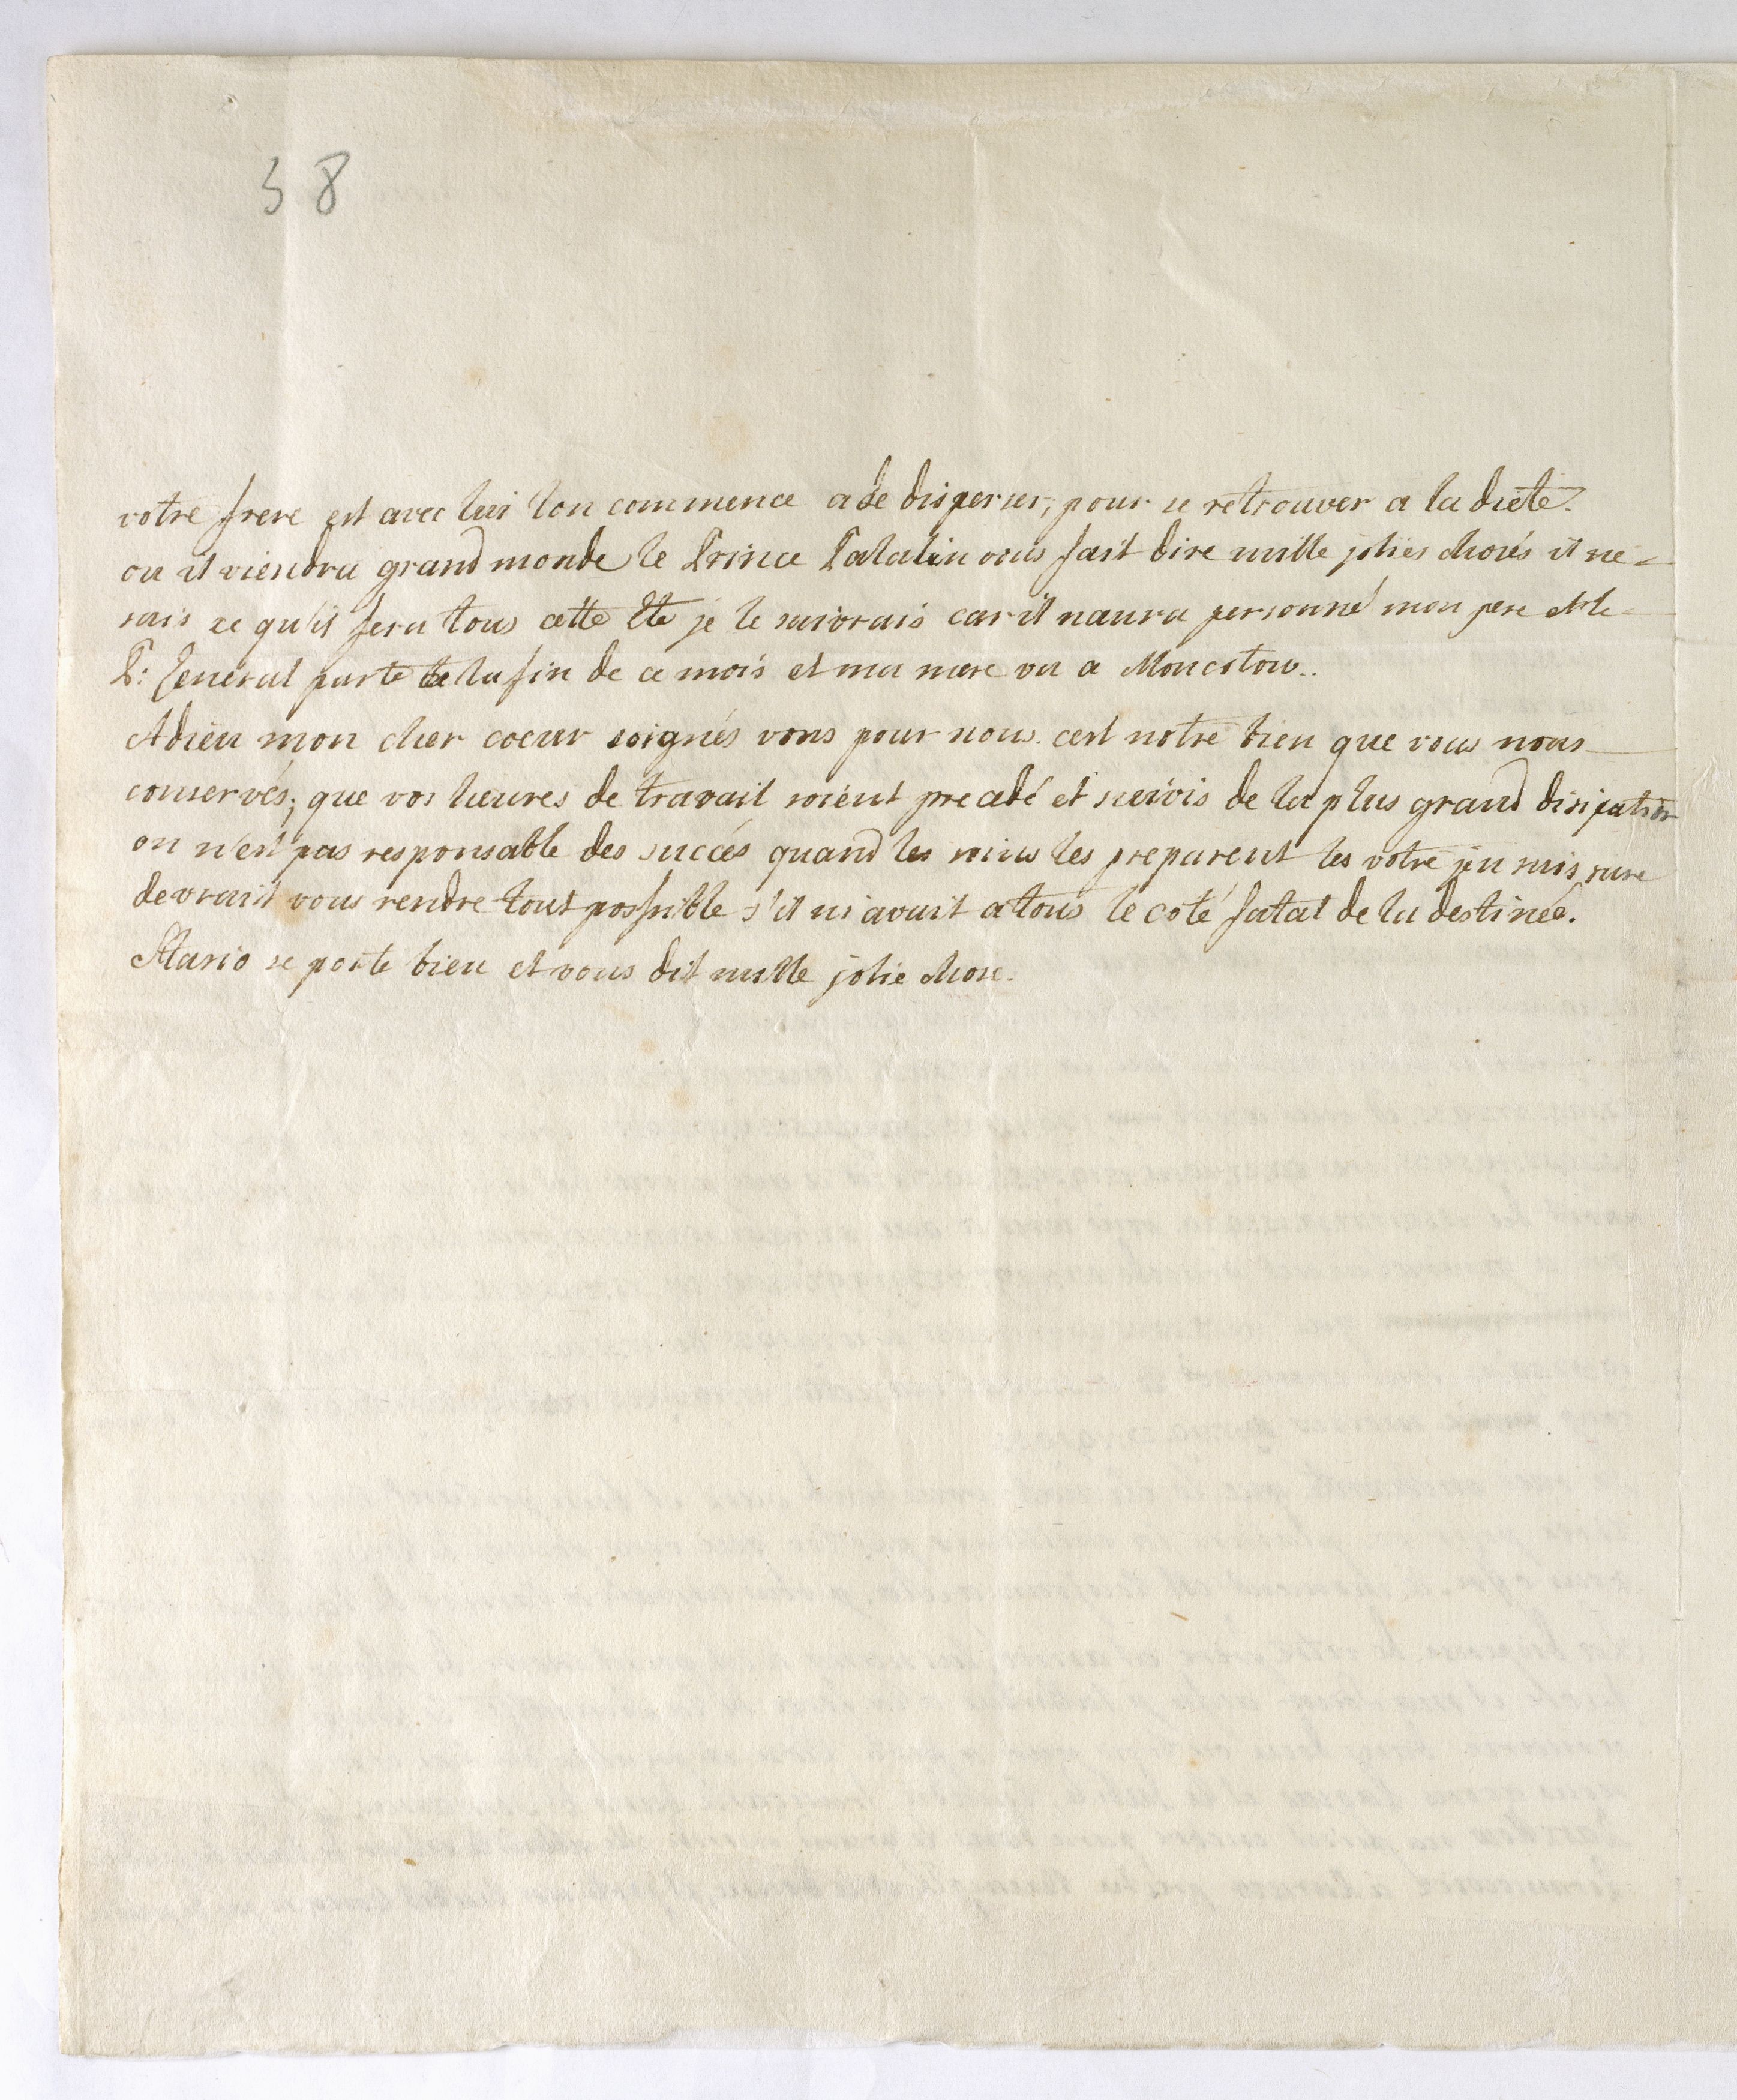 58
votre frere est avec lui l'on commence a de disperser, pour se retrouver a la diete.
ou il viendra grand monde le Prince Palatin vous fait dire mille jolies chosés il ne
sais ce qu'il fera tous cette Ete je le suivrais car il naura personne mon pere et le
P: General parte de la fin de ce mois et ma mere va a Moncotow..
Adieu mon cher coeur soignés vous pour nous. cest notre bien que vous nous
conservés; que vos heures de travail soient precedé et suivis de la plus grand disipation
on n'est pas responsable des succés quand les soins les preparent les votre jen suis sure
devrait vous rendre tout possible s'il ni avait a tous le coté fatal de la destinée.
Stasio se porte bien et vous dit mille jolie chose.